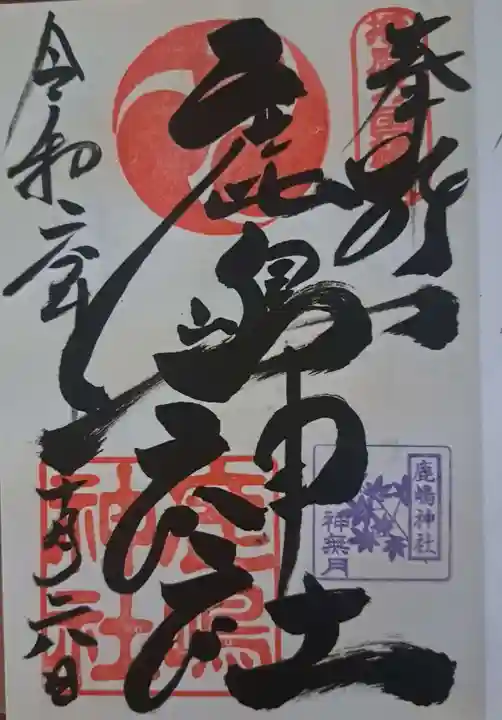 奉拝
鹿嶋神社
令和二年
十月六日
鹿嶋
神社
鹿嶋神社
神無月